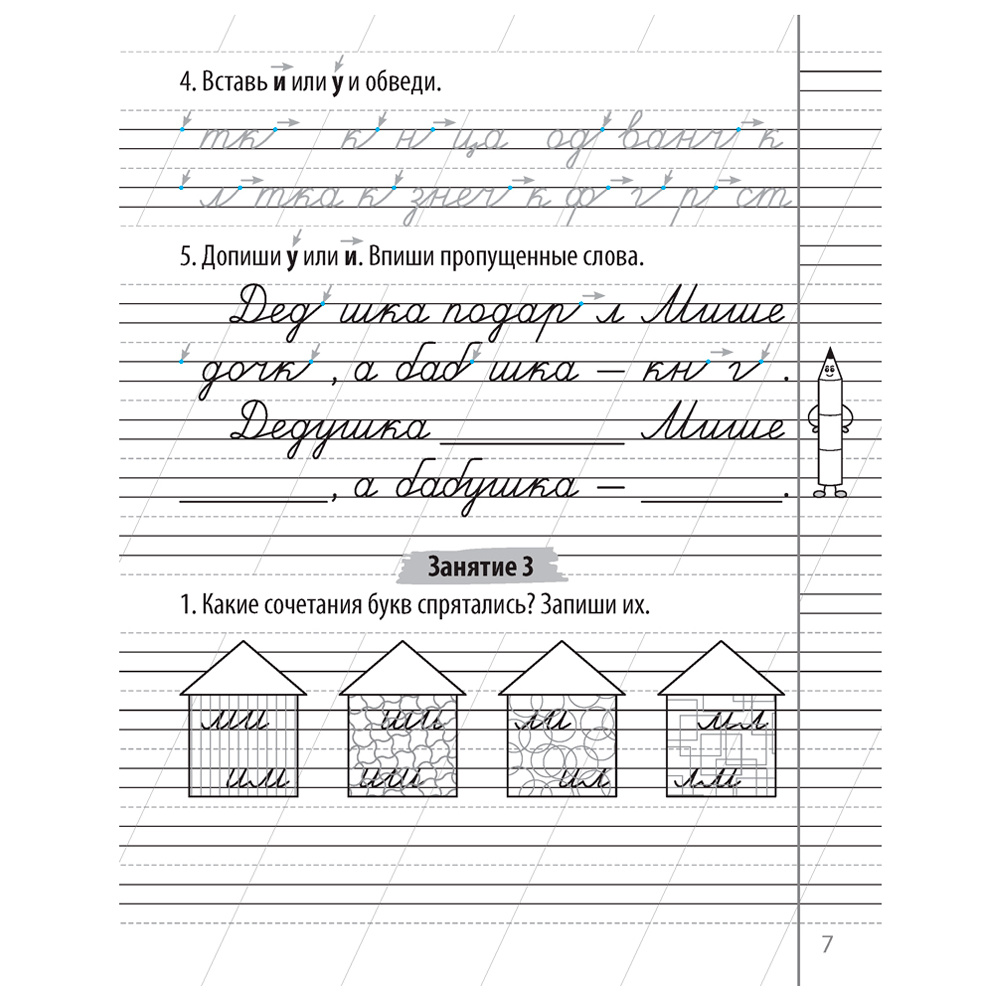 4. Вставь и или у и обведи.
 тк   к н ца   од ванч к
 л тка к знеч к ф г р ст
5. Допиши у или и. Впиши пропущенные слова.
Дед шка подар л Мише
 дочк , а баб шка – кн г .
Дедушка ____________ Мише
__________, а бабушка – __________.
Занятие 3
1. Какие сочетания букв спрятались? Запиши их.
ми ши ли мл
им иш ил лм
7